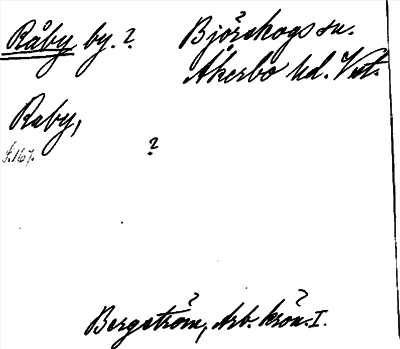 Råby by. ?
Björskogs sn.
Åkerbo hd. Vst.
Raby,
s. 167.
?
Bergström, Arb. krön. I.